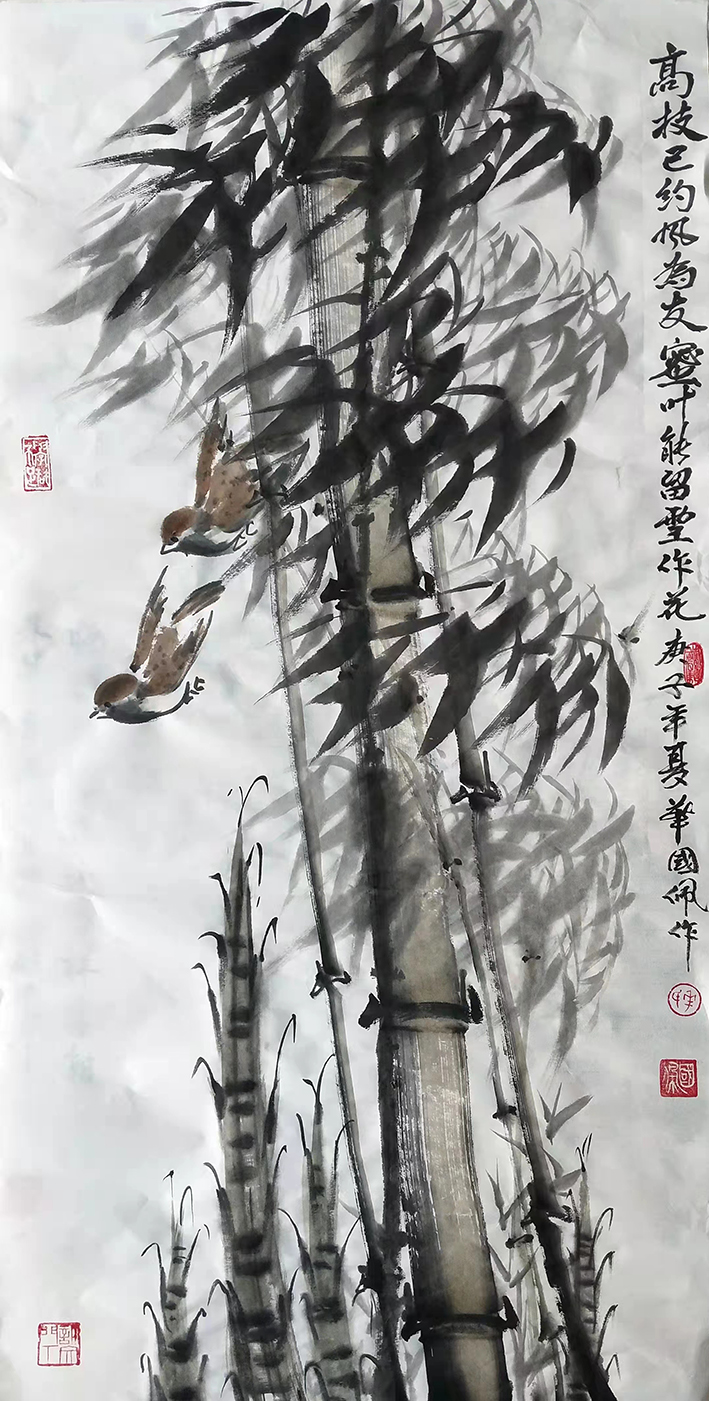 高枝已约風為友密叶能留雪作花庚子年夏華國佩作